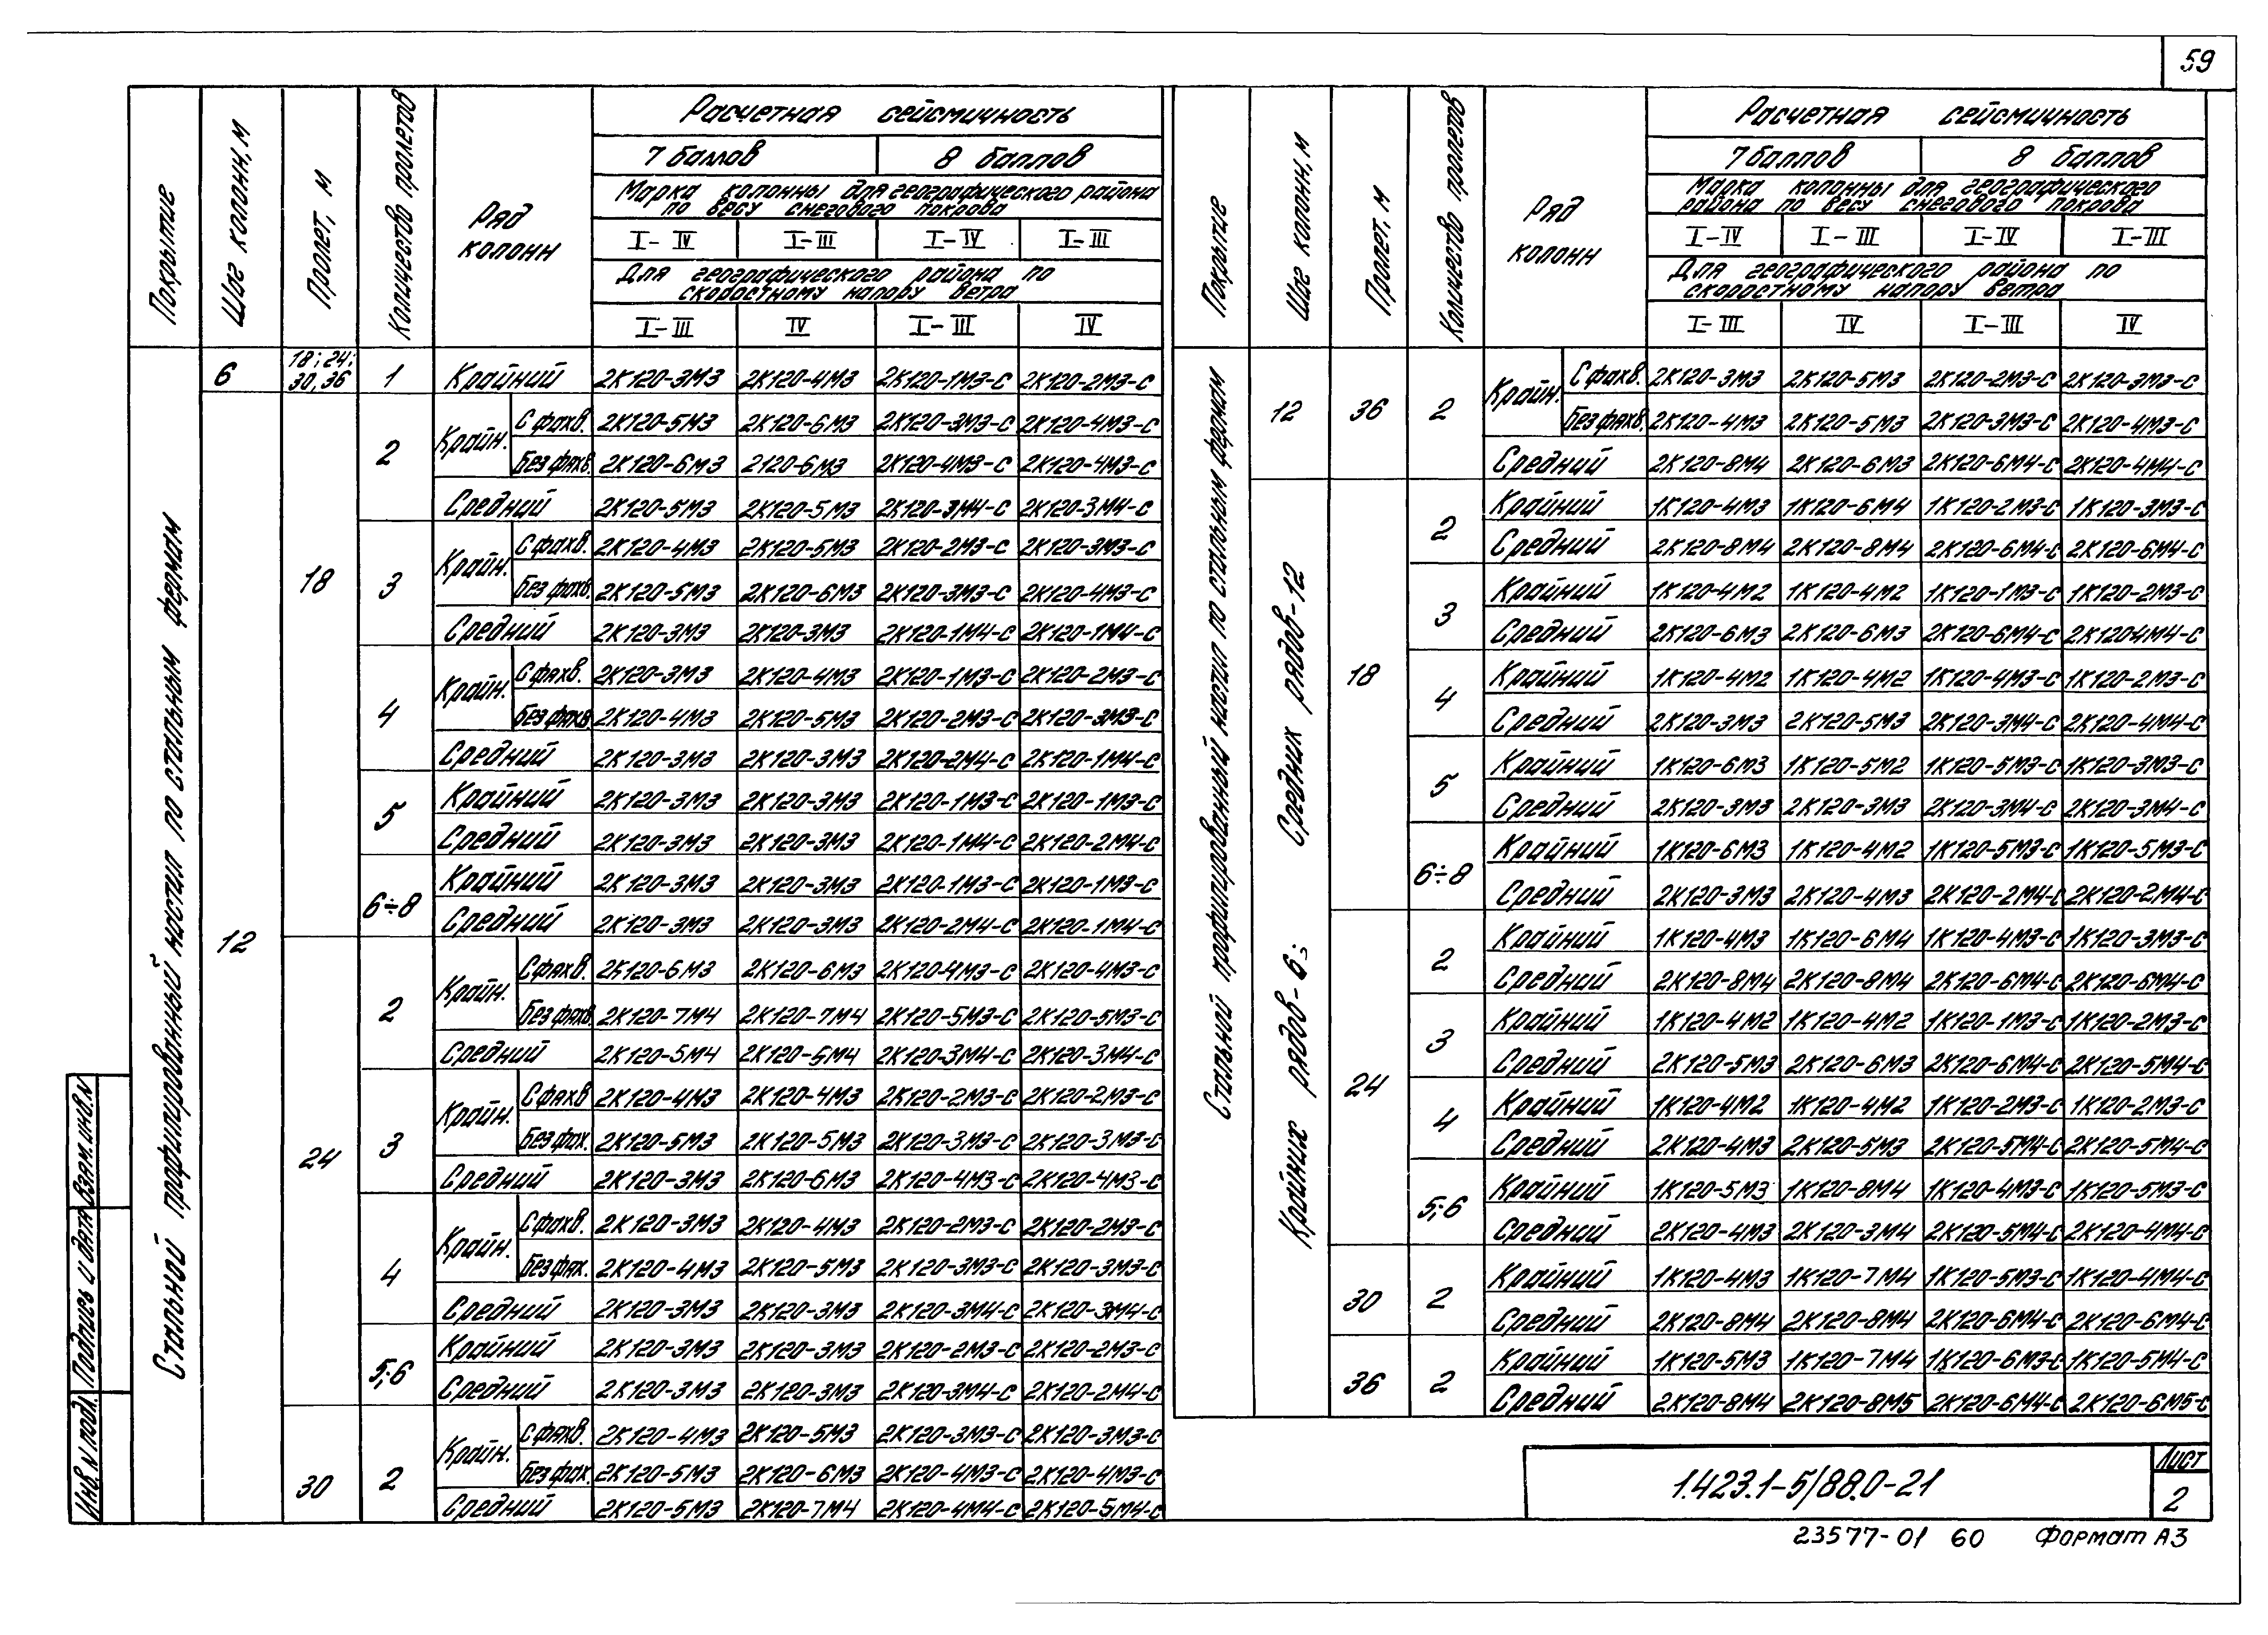 59
Покрытие
Шаг колонн, м
Пролет, м
Количество пролетов
Ряд колонн
Расчетная сейсмичность
7 баллов 8 баллов
Марка колонны для географического района
по весу снегового покрова
I-IV I-III I-IV I-III
Для географического района по
скоростному напору ветра
I-III IV I-III IV
Стальной профилированный настил по стальным фермам
6 18; 24; 30, 36 1 Крайний 2К120-3М3 2К120-4М3 2К120-1М3-С 2К120-2М3-С
12 18 2 Крайн. С фахв. 2К120-5М3 2К120-6М3 2К120-3М3-С 2К120-4М3-С
Без фахв. 2К120-6М3 2120-6М3 2К120-4М3-С 2К120-4М3-С
Средний 2К120-5М3 2К120-5М3 2К120-3М4-С 2К120-3М4-С
3 Крайн. С фахв. 2К120-4М3 2К120-5М3 2К120-2М3-С 2К120-3М3-С
Без фахв. 2К120-5М3 2К120-6М3 2К120-3М3-С 2К120-4М3-С
Средний 2К120-3М3 2К120-3М3 2К120-1М4-С 2К120-1М4-С
4 Крайн. С фахв. 2К120-3М3 2К120-4М3 2К120-1М3-С 2К120-2М3-С
Без фахв. 2К120-4М3 2К120-5М3 2К120-2М3-С 2К120-3М3-С
Средний 2К120-3М3 2К120-3М3 2К120-2М4-С 2К120-1М4-С
5 Крайний 2К120-3М3 2К120-3М3 2К120-1М3-С 2К120-1М3-С
Средний 2К120-3М3 2К120-3М3 2К120-1М4-С 2К120-2М4-С
6÷8 Крайний 2К120-3М3 2К120-3М3 2К120-1М3-С 2К120-1М3-С
Средний 2К120-3М3 2К120-3М3 2К120-2М4-С 2К120-1М4-С
24 2 Крайн. С фахв. 2К120-6М3 2К120-6М3 2К120-4М3-С 2К120-4М3-С
Без фахв. 2К120-7М4 2К120-7М4 2К120-5М3-С 2К120-5М3-С
Средний 2К120-5М4 2К120-5М4 2К120-3М4-С 2К120-3М4-С
3 Крайн. С фахв 2К120-4М3 2К120-4М3 2К120-2М3-С 2К120-2М3-С
Без фах. 2К120-5М3 2К120-5М3 2К120-3М3-С 2К120-3М3-С
Средний 2К120-3М3 2К120-6М3 2К120-4М3-С 2К120-4М3-С
4 Крайн. С фахв. 2К120-3М3 2К120-4М3 2К120-2М3-С 2К120-2М3-С
Без фах. 2К120-4М3 2К120-5М3 2К120-3М3-С 2К120-3М3-С
Средний 2К120-3М3 2К120-3М3 2К120-3М4-С 2К120-3М4-С
5;6 Крайний 2К120-3М3 2К120-3М3 2К120-2М3-С 2К120-2М3-С
Средний 2К120-3М3 2К120-3М3 2К120-3М4-С 2К120-2М4-С
30 2 Крайн. С фахв. 2К120-4М3 2К120-5М3 2К120-3М3-С 2К120-3М3-С
Без фах. 2К120-5М3 2К120-6М3 2К120-4М3-С 2К120-4М3-С
Средний 2К120-5М3 2К120-7М4 2К120-4М4-С 2К120-5М4-С
Покрытие
Шаг колонн, м
Пролет, м
Количество пролетов
Ряд колонн
Расчетная сейсмичность
7 баллов 8 баллов
Марка колонны для географического
района по весу снегового покрова
I-IV I-III I-IV I-III
Для географического района по
скоростному напору ветра
I-III IV I-III IV
Стальной профилированный настил по стальным фермам
12 36 2 Крайн. С фахв. 2К120-3М3 2К120-5М3 2К120-2М3-С 2К120-3М3-С
Без фахв. 2К120-4М3 2К120-5М3 2К120-3М3-С 2К120-4М3-С
Средний 2К120-8М4 2К120-6М3 2К120-6М4-С 2К120-4М4-С
Крайних рядов-6; Средних рядов-12
18 2 Крайний 1К120-4М3 1К120-6М4 1К120-2М3-С 1К120-3М3-С
Средний 2К120-8М4 2К120-8М4 2К120-6М4-С 2К120-6М4-С
3 Крайний 1К120-4М2 1К120-4М2 1К120-1М3-С 1К120-2М3-С
Средний 2К120-6М3 2К120-6М3 2К120-6М4-С 2К1204М4-С
4 Крайний 1К120-4М2 1К120-4М2 1К120-4М3-С 1К120-2М3-С
Средний 2К120-3М3 2К120-5М3 2К120-3М4-С 2К120-4М4-С
5 Крайний 1К120-6М3 1К120-5М2 1К120-5М3-С 1К120-3М3-С
Средний 2К120-3М3 2К120-3М3 2К120-3М4-С 2К120-3М4-С
6÷8 Крайний 1К120-6М3 1К120-4М2 1К120-5М3-С 1К120-5М3-С
Средний 2К120-3М3 2К120-4М3 2К120-2М4-С 2К120-2М4-С
24 2 Крайний 1К120-4М3 1К120-6М4 1К120-4М3-С 1К120-3М3-С
Средний 2К120-8М4 2К120-8М4 2К120-6М4-С 2К120-6М4-С
3 Крайний 1К120-4М2 1К120-4М2 1К120-1М3-С 1К120-2М3-С
Средний 2К120-5М3 2К120-6М3 2К120-6М4-С 2К120-5М4-С
4 Крайний 1К120-4М2 1К120-4М2 1К120-2М3-С 1К120-2М3-С
Средний 2К120-4М3 2К120-5М3 2К120-5М4-С 2К120-5М4-С
5;6 Крайний 1К120-5М3 1К120-8М4 1К120-4М3-С 1К120-5М3-С
Средний 2К120-4М3 2К120-3М4 2К120-5М4-С 2К120-4М4-С
30 2 Крайний 1К120-4М3 1К120-7М4 1К120-5М3-С 1К120-4М4-С
Средний 2К120-8М4 2К120-8М4 2К120-6М4-С 2К120-6М4-С
36 2 Крайний 1К120-5М3 1К120-7М4 1К120-6М3-С 1К120-5М4-С
Средний 2К120-8М4 2К120-8М5 2К120-6М4-С 2К120-6М5-С
Инв. N подл. Подпись и дата Взам. инв. N
1.423.1-5/88.0-21
Лист
2
23577-01 60 Формат А3